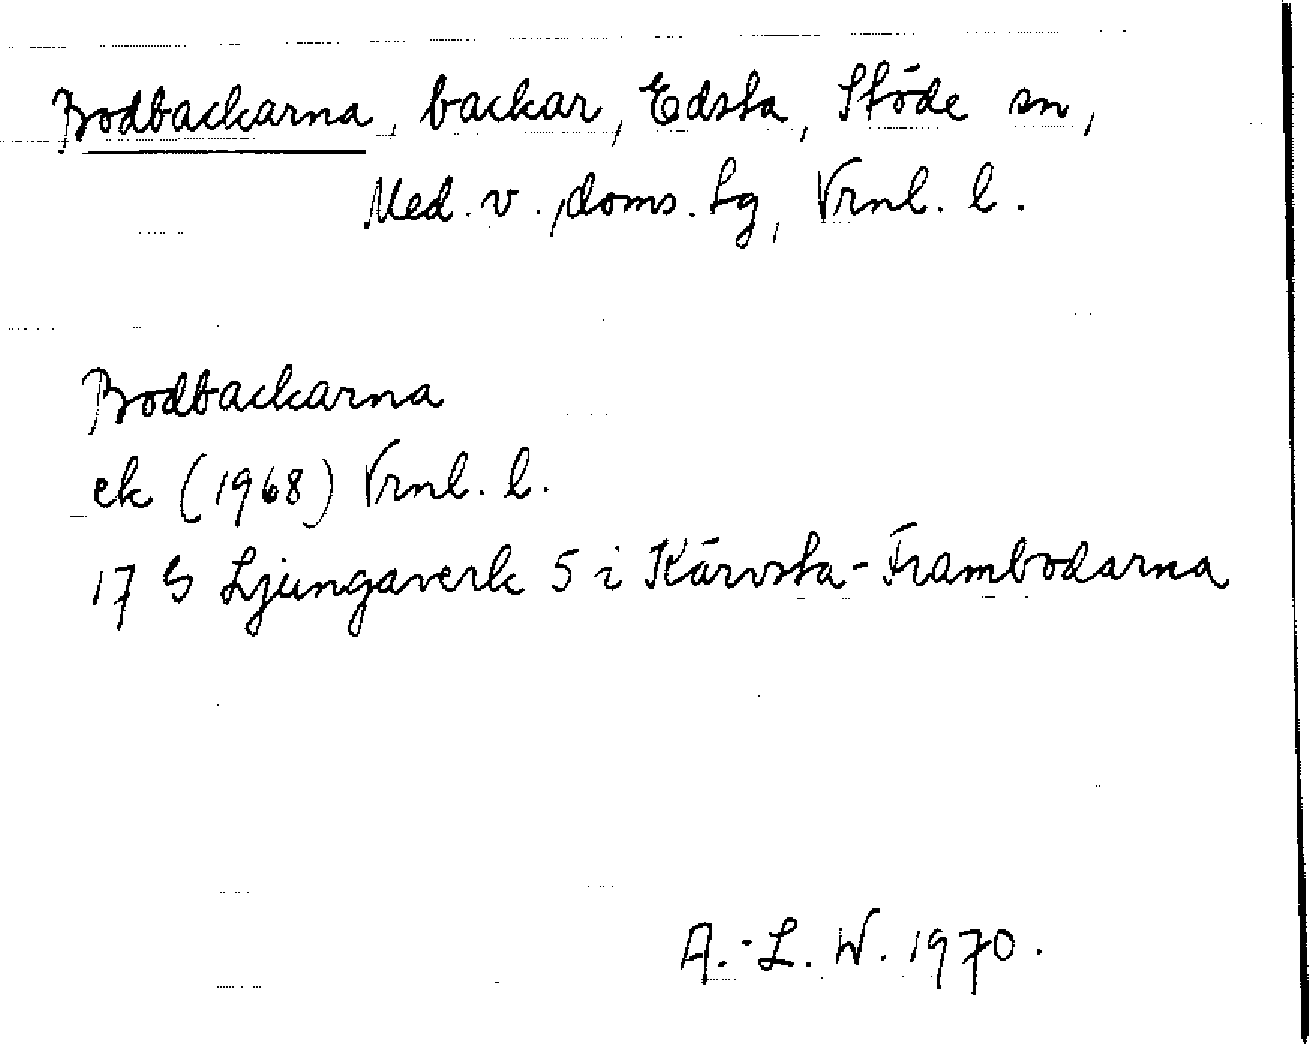 Bodbackarna, backar, Edsta, Stöde sn,
Med. v., doms. lg, Vrnl. l.
Bodbackarna
ek (1968) Vrnl. l.
17 G Ljungaverk 5 i Kärvsta-Frambodarna
A.-L. W. 1970.